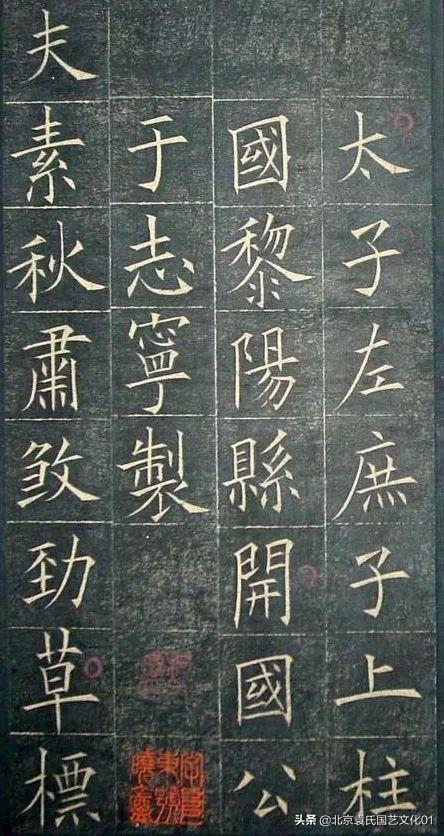 太子左庶子上柱
國黎陽縣開國公
于志寧製
夫素秋肅煞勁草標
头条 @北京袁氏国艺文化01